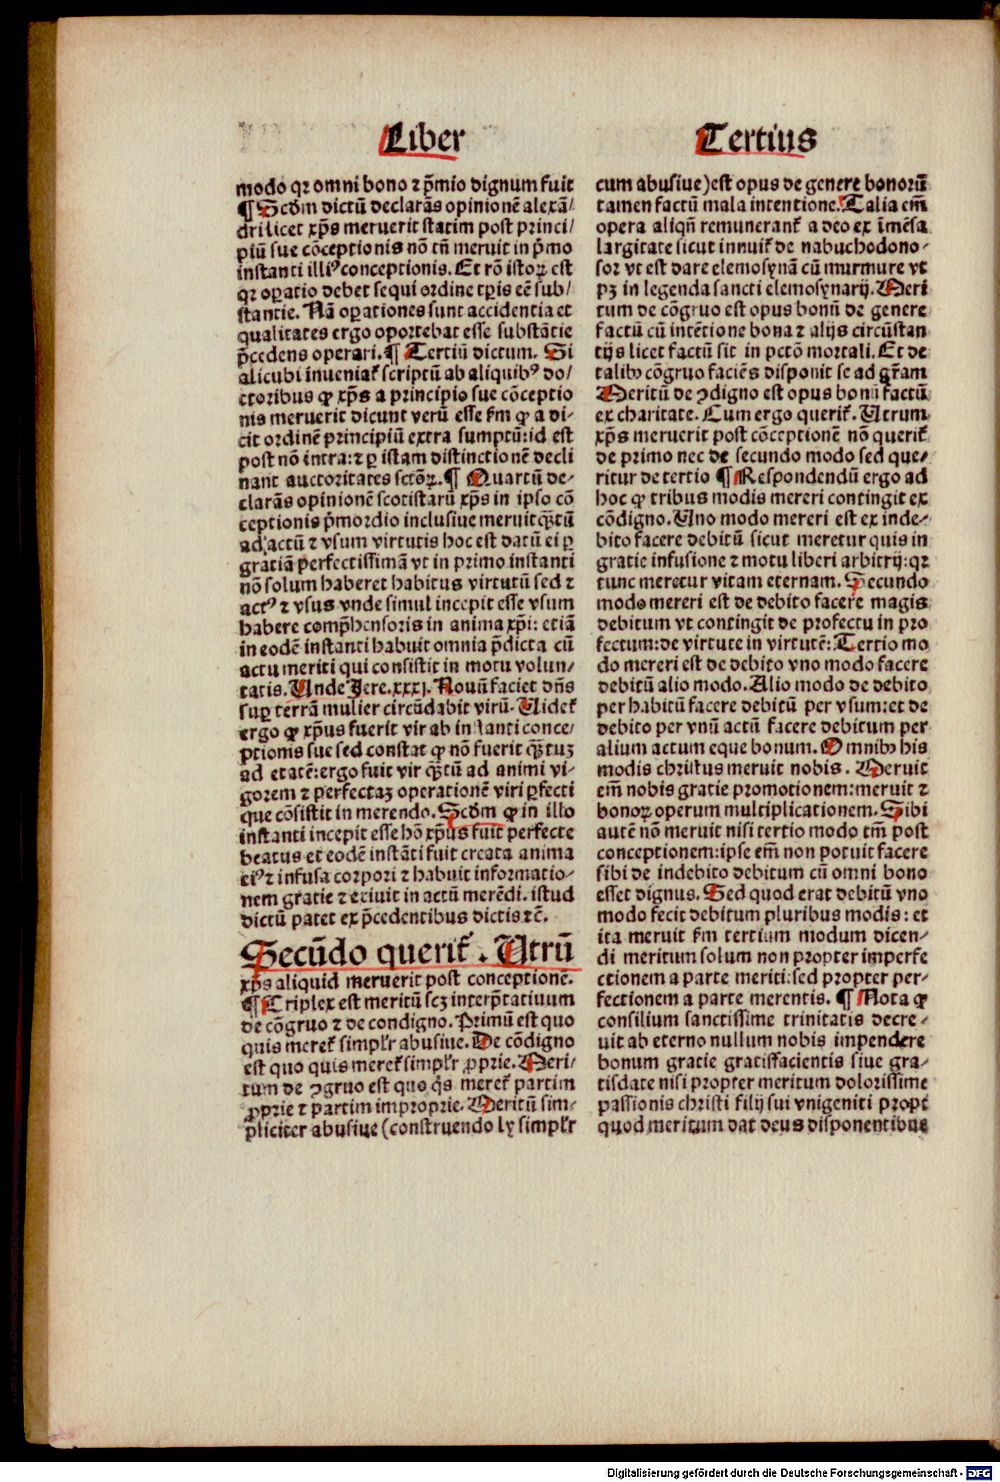 Liber Tertius
modo qꝛ omni bono ⁊ p̄mio dignum fuit
¶ Scďm dictū declarās opinionē alexā/
dri licet xp̄s meruerit statim post princi/
piū sue cōceptionis nō tn̄ meruit in p̄mo
instanti illiꝰ conceptionis. Et rō istoꝝ est
qꝛ oꝑatio debet sequi ordine tꝑis eē sub/
stantie. Nā oꝑationes sunt accidentia et
qualitates ergo oportebat esse substātie
p̄cedens operari. ¶ Tertiū dictum. Si
alicubi inueniat̄ scriptū ab aliquibꝰ do/
ctoribus ꝙ xp̄s a principio sue cōceptio
nis meruerit dicunt verū esse s̄m ꝙ a di-
cit ordinē principiū extra sumptū: id est
post nō intra: ⁊ ꝑ istam distinctionē decli
nant auctoritates sctōꝝ. ¶ Quartū de-
clarās opinionē scotistarū xp̄s in ipso cō
ceptionis p̄mordio inclusiue meruit qꝫ̄tū
ad actū ⁊ vsum virtutis hoc est datū ei ꝑ
gratiā perfectissimā vt in primo instanti
nō solum haberet habitus virtutū sed ⁊
actꝰ ⁊ vsus vnde simul incepit esse vsum
habere comp̄hensoris in anima xp̄i: etiā
in eodē instanti habuit omnia p̄dicta cū
actu meriti qui consistit in motu volun-
tatis. Unde Jere. xxxj. Nouū faciet dn̄s
suꝑ terrā mulier circūdabit virū. Uidet̄
ergo ꝙ xp̄us fuerit vir ab instanti conce-
ptionis sue sed constat ꝙ nō fuerit qꝫ̄tuꝫ
ad etatē: ergo fuit vir qꝫ̄tū ad animi vi-
gorem ⁊ perfectaꝫ operationē viri ꝑfecti
que cōsistit in merendo. Scďm ꝙ in illo
instanti incepit esse hō xp̄us fuit perfecte
beatus et eodē instāti fuit creata anima
eiꝰ ⁊ infusa corpori ⁊ habuit informatio-
nem gratie ⁊ exiuit in actū merēdi. istud
dictū patet ex p̄cedentibus dictis ⁊c̄.
Secūdo querit̄. Utrū
xp̄s aliquid meruerit post conceptionē.
¶ Triplex est meritū scꝫ interp̄tatiuum
de cōgruo ⁊ de condigno. Primū est quo
quis meret̄ simpl̄r abusiue. De cōdigno
est quo quis meret̄ simpl̄r ꝓprie. Meri-
tum de ꝯgruo est quo q̄s meret̄ partim
ꝓprie ⁊ partim improprie. Meritū sim-
pliciter abusiue (construendo ly simpl̄r
cum abusiue) est opus de genere bonorū
tamen factū mala intentione. Talia em̄
opera aliqn̄ remunerant̄ a deo ex īmēsa
largitate sicut innuit̄ de nabuchodono-
sor vt est dare elemosynā cū murmure vt
pꝫ in legenda sancti elemosynarij. Meri
tum de cōgruo est opus bonū de genere
factū cū intētione bona ⁊ alijs circūstan
tijs licet factū sit in pctō mortali. Et de
talibꝫ cōgruo faciēs disponit se ad gr̄am
Meritū de ꝯdigno est opus bonū factū
ex charitate. Cum ergo querit̄. Utrum
xp̄s meruerit post cōceptionē nō querit̄
de primo nec de secundo modo sed que-
ritur de tertio ¶ Respondendū ergo ad
hoc ꝙ tribus modis mereri contingit ex
cōdigno. Uno modo mereri est ex inde-
bito facere debitū sicut meretur quis in
gratie infusione ⁊ motu liberi arbitrij: qꝛ
tunc meretur vitam eternam. Secundo
modo mereri est de debito facere magis
debitum vt contingit de profectu in pro
fectum: de virtute in virtutē: Tertio mo
do mereri est de debito vno modo facere
debitū alio modo. Alio modo de debito
per habitū facere debitū per vsum: et de
debito per vnū actū facere debitum per
alium actum eque bonum. Omnibꝫ his
modis christus meruit nobis. Meruit
em̄ nobis gratie promotionem: meruit ⁊
bonoꝝ operum multiplicationem. Sibi
autē nō meruit nisi tertio modo tm̄ post
conceptionem: ipse em̄ non potuit facere
sibi de indebito debitum cū omni bono
esset dignus. Sed quod erat debitū vno
modo fecit debitum pluribus modis: et
ita meruit s̄m tertium modum dicen-
di meritum solum non propter imperfe
ctionem a parte meriti: sed propter per-
fectionem a parte merentis. ¶ Nota ꝙ
consilium sanctissime trinitatis decre-
uit ab eterno nullum nobis impendere
bonum gratie gratisfacientis siue gra-
tisdate nisi propter meritum dolorissime
passionis christi filij sui vnigeniti propt̄
quod meritum dat deus disponentibus
Digitalisierung gefördert durch die Deutsche Forschungsgemeinschaft - DFG